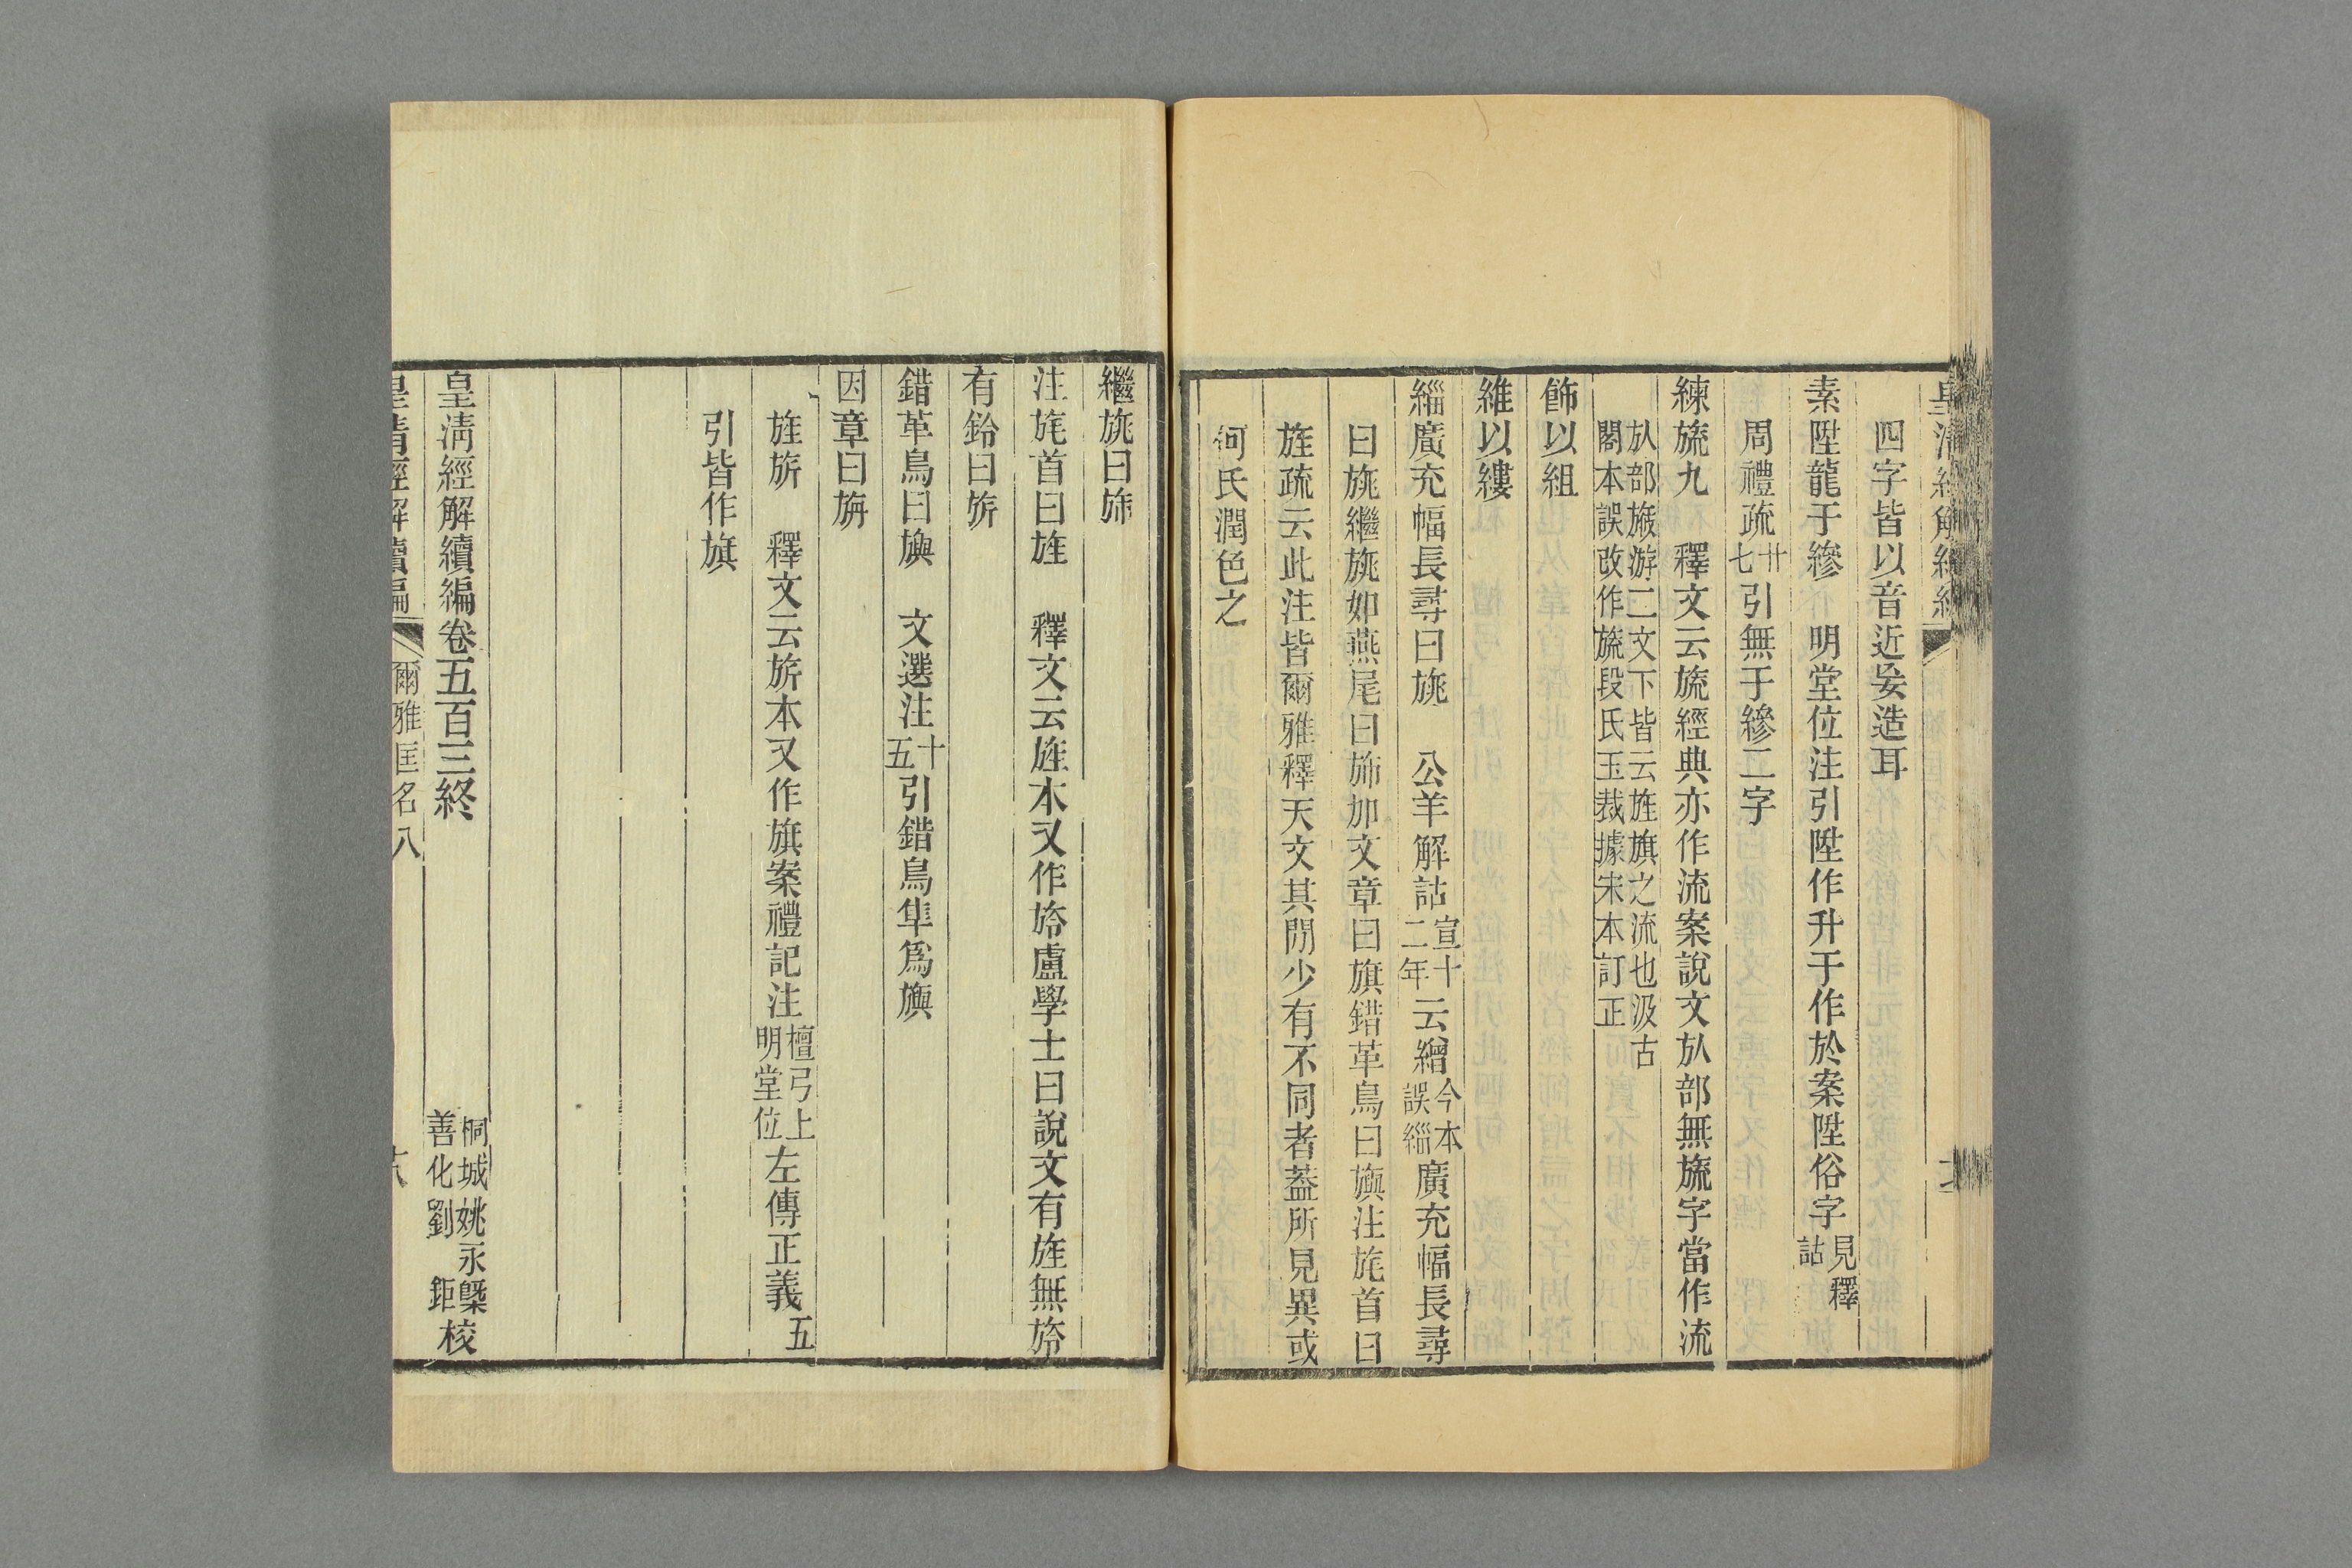 四字皆以音近妄造耳
素陞龍于縿　明堂位注引陞作升于作於案陞俗字見釋詁
周禮疏廿七引無于縿二字
練旒九　釋文云旒經典亦作流案說文㫃部無旒字當作流
㫃部旞游二文下皆云旌旗之流也汲古
閣本誤改作旒段氏玉裁據宋本訂正
飾以組
維以縷
緇廣充幅長尋曰旐　公羊解詁宣十二年云繒今本誤緇廣充幅長尋
曰旐繼旐如燕尾曰旆加文章曰旗錯革鳥曰旟注旄首曰
旌疏云此注皆爾雅釋天文其閒少有不同者蓋所見異或
何氏潤色之
繼旐曰旆
注旄首曰旌　釋文云旌本又作㫌盧學士曰說文有旌無㫌
有鈴曰旂
錯革鳥曰旟　文選注十五引錯鳥隼爲旟
因章曰旃
旌旂　釋文云旂本又作旗案禮記注檀弓上明堂位左傳正義五
引皆作旗
皇淸經解續編卷五百三終
桐城姚永㮣
善化劉　鉅校
皇清經解續編
爾雅匡名八